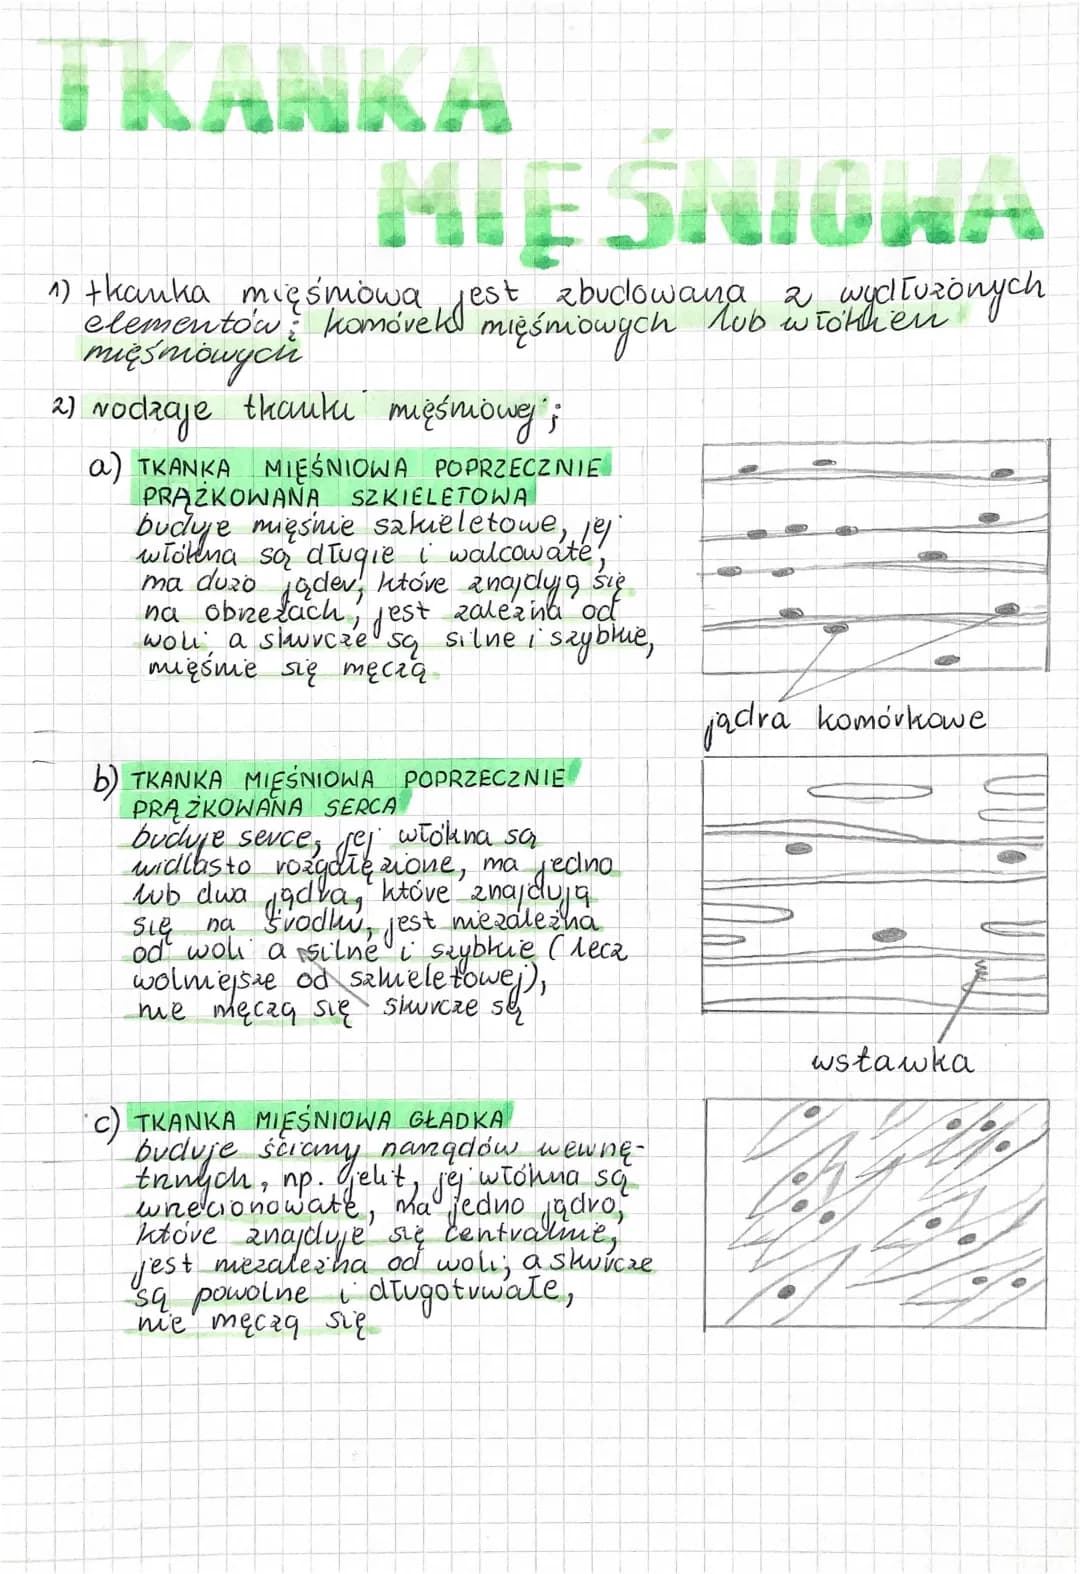 TKANKA
MIĘŚNIOWA
1) tkanka mięśniowa jest zbudowana z wydłużonych
elementów: komórek mięśniowych lub włókien
mięśniowych
2) rodzaje tkanki mięśniowej:
a) TKANKA MIĘŚNIOWA POPRZECZNIE
PRĄŻKOWANA SZKIELETOWA
buduje mięśnie szkieletowe, jej
włókna są długie i walcowate,
ma dużo jąder, które znajdują się
na obrzeżach, jest zależna od
woli, a skurcze są silne i szybkie,
mięśnie się męczą
jądra komórkowe
b) TKANKA MIĘŚNIOWA POPRZECZNIE
PRĄŻKOWANA SERCA
buduje serce, jej włókna są
widlasto rozgałęzione, ma jedno
lub dwa jądra, które znajdują
się na środku, jest niezależna
od woli a silne i szybkie (lecz
wolniejsze od szkieletowej),
nie męczą się skurcze są
wstawka
c) TKANKA MIĘŚNIOWA GŁADKA
buduje ściany narządów wewnę-
trznych, np. jelit, jej włókna są
wrzecionowate, ma jedno jądro,
które znajduje się centralnie,
jest niezależna od woli, a skurcze
są powolne i długotrwałe,
nie męczą się